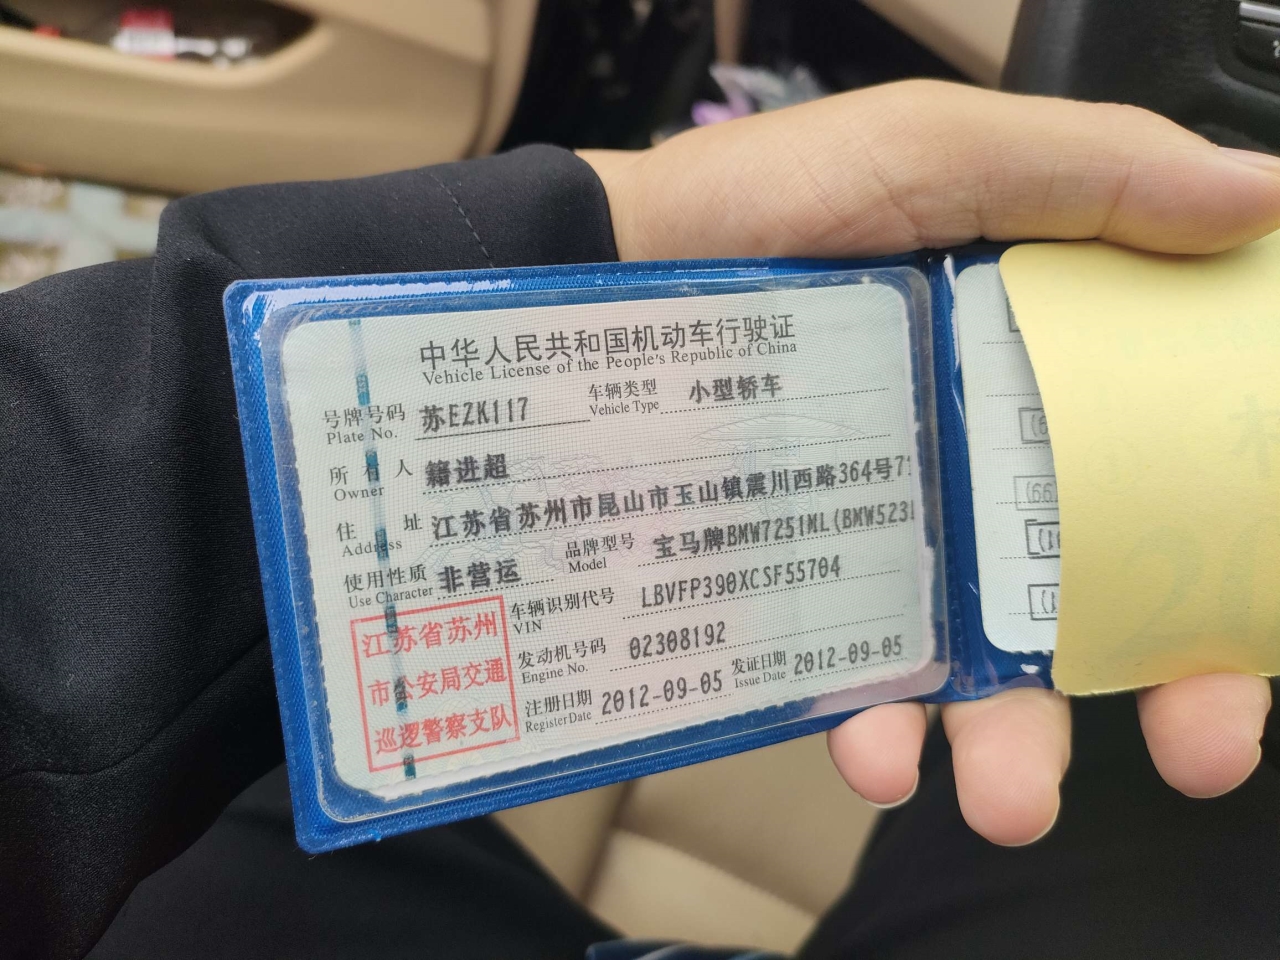 中华人民共和国机动车行驶证
Vehicle License of the People's Republic of China
号牌号码 苏EZK117 车辆类型 小型轿车
Plate No. Vehicle Type
所有人 籍进超
Owner
住址 江苏省苏州市昆山市玉山镇震川西路364号7
Address
使用性质 非营运 品牌型号 宝马牌BMW7251ML(BMW523
Use Character Model
江苏省苏州
市公安局交通
巡逻警察支队
车辆识别代号 LBVFP390XCSF55704
VIN
发动机号码 02308192
Engine No.
注册日期 2012-09-05 发证日期 2012-09-05
Register Date Issue Date